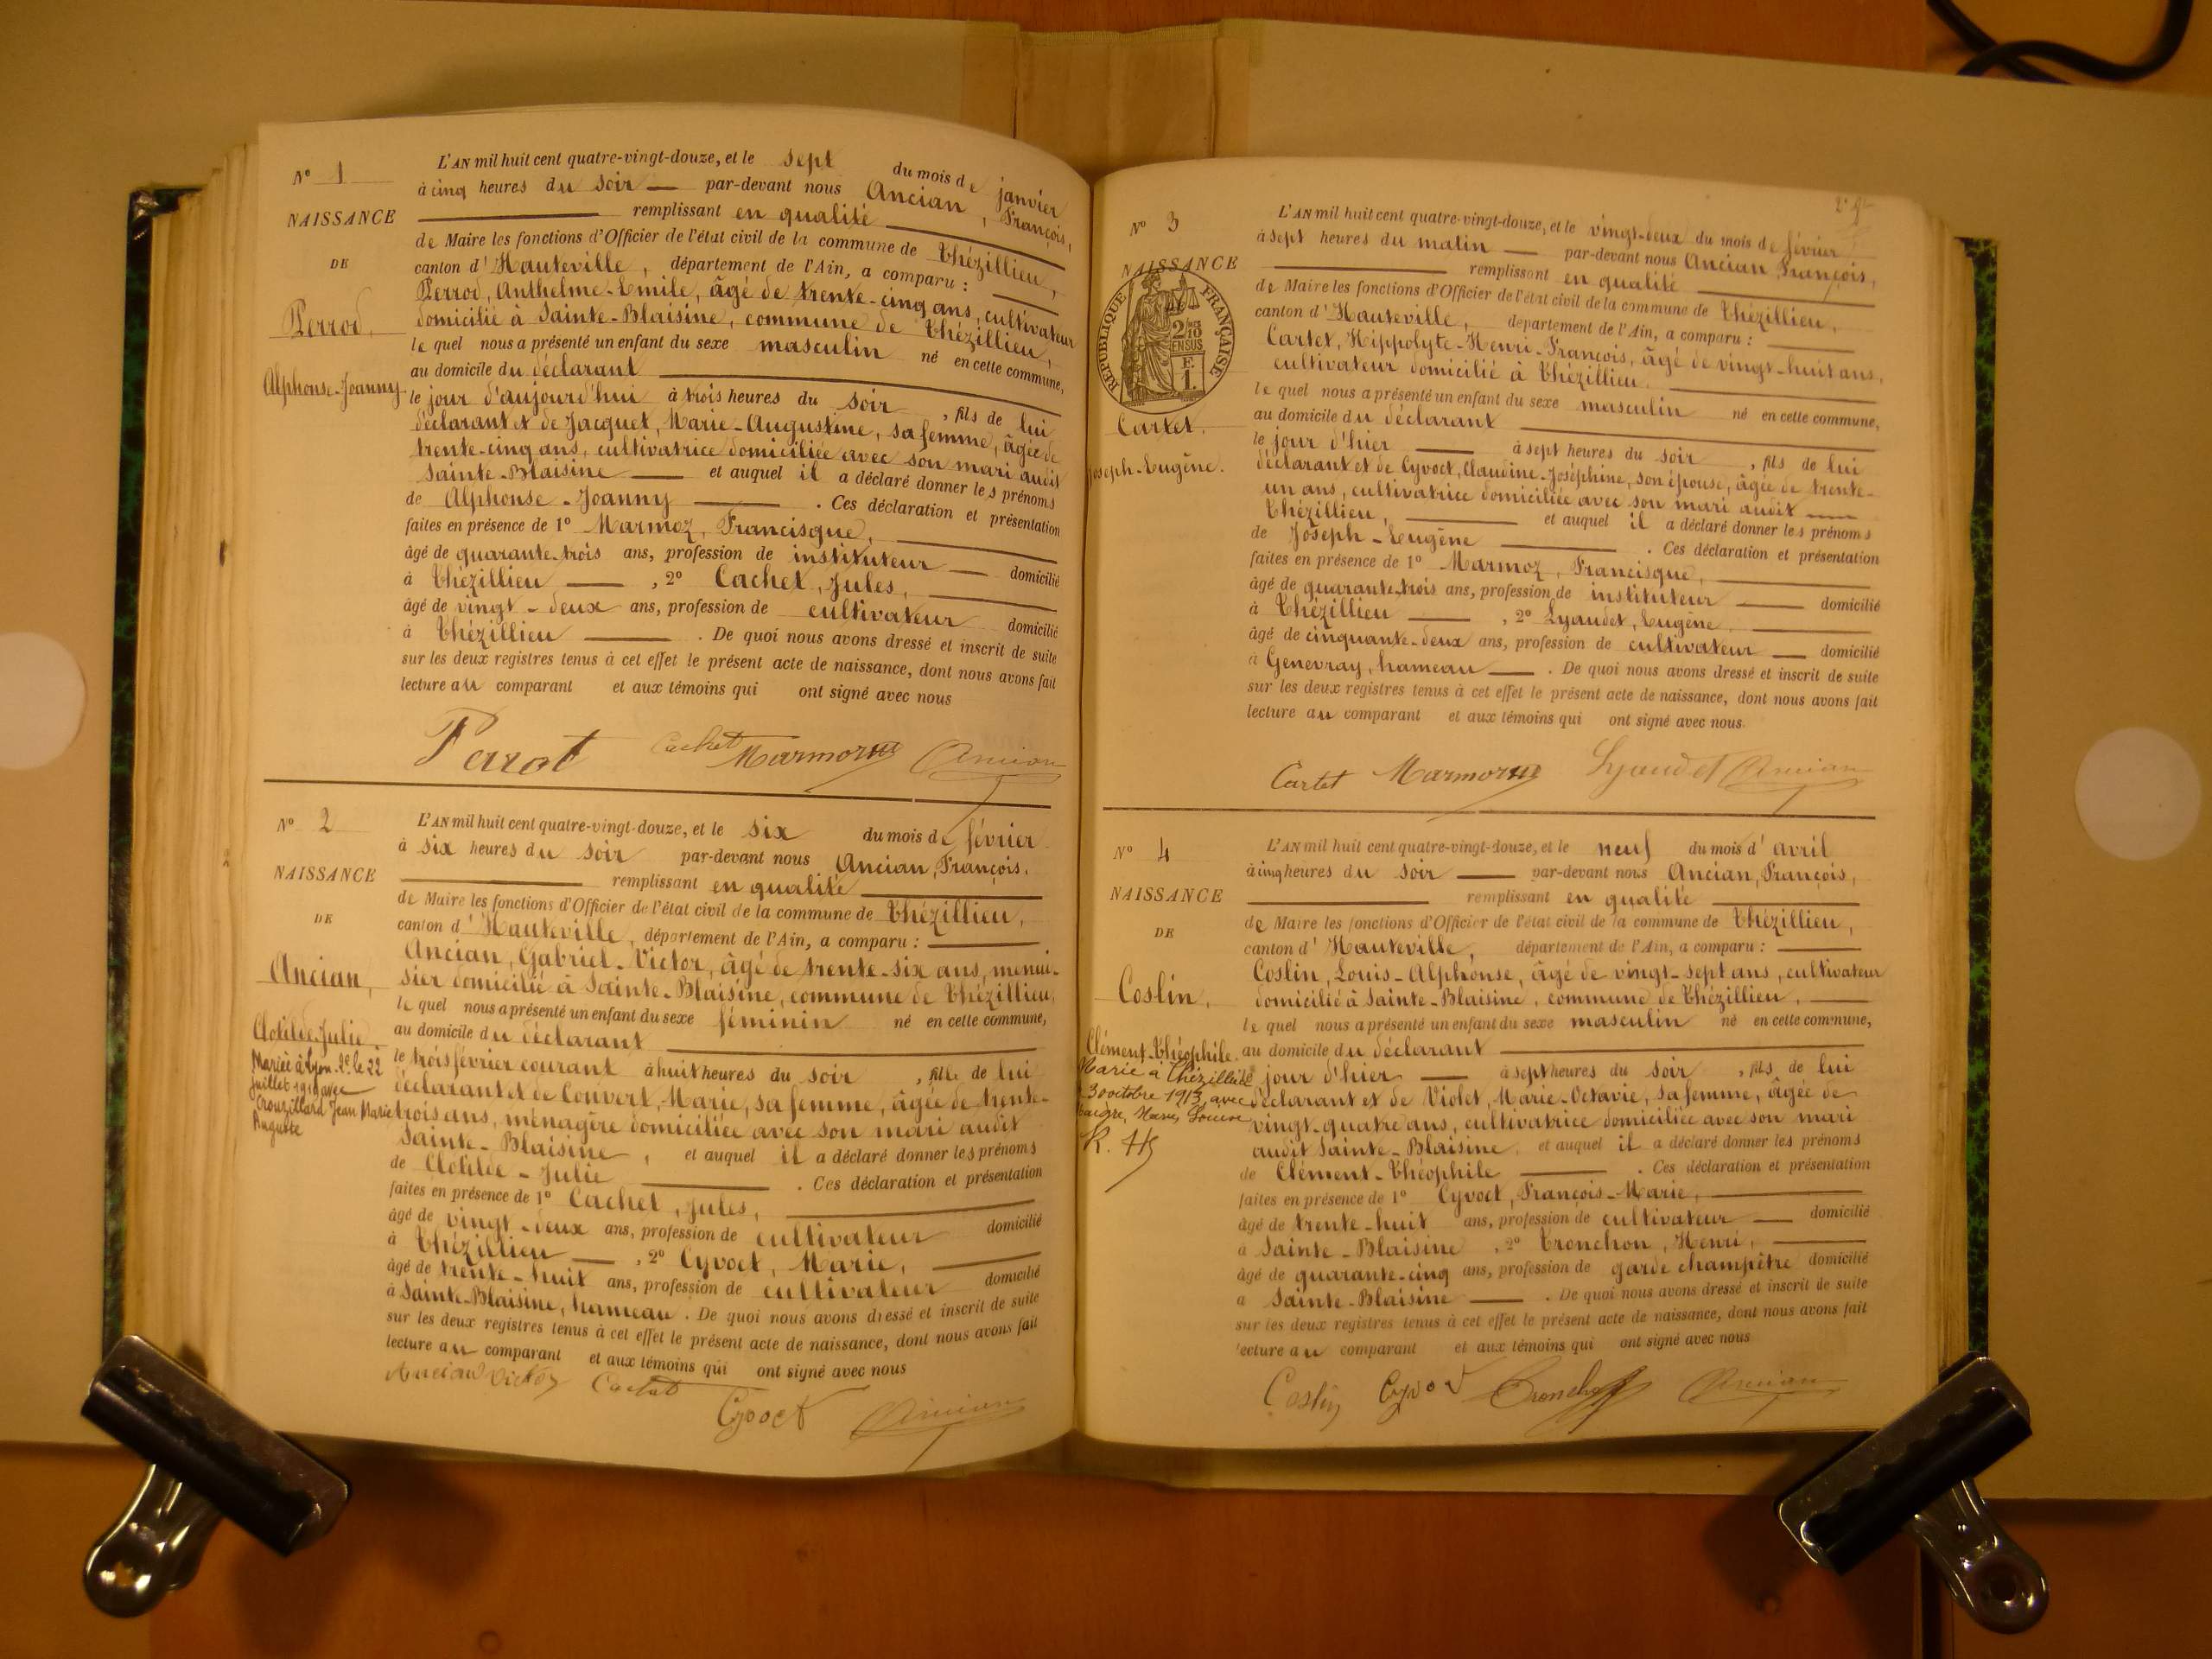 N° 1
NAISSANCE
DE
Perrod,
Alphonse-Joanny
L'AN mil huit cent quatre-vingt-douze, et le sept du mois de janvier
à cinq heures du soir par-devant nous Ancian, François,
remplissant en qualité
de Maire les fonctions d'Officier de l'état civil de la commune de Thézillieu,
canton d'Hauteville, département de l'Ain, a comparu :
Perrod, Anthelme-Emile, âgé de trente-cinq ans, cultivateur
domicilié à Sainte-Blaisine, commune de Thézillieu,
lequel nous a présenté un enfant du sexe masculin né en cette commune,
au domicile du déclarant
le jour d'aujourd'hui à trois heures du soir, fils de lui
déclarant et de Jacquet, Marie-Augustine, sa femme, âgée de
trente-cinq ans, cultivatrice domiciliée avec son mari audit
Sainte-Blaisine et auquel il a déclaré donner les prénoms
de Alphonse-Joanny . Ces déclaration et présentation
faites en présence de 1° Marmoz, Francisque,
âgé de quarante-trois ans, profession de instituteur domicilié
à Thézillieu , 2° Cachet, Jules,
âgé de vingt-deux ans, profession de cultivateur domicilié
à Thézillieu . De quoi nous avons dressé et inscrit de suite
sur les deux registres tenus à cet effet le présent acte de naissance, dont nous avons fait
lecture au comparant et aux témoins qui ont signé avec nous
Perrot Cachet Marmoz Ancian
N° 2
NAISSANCE
DE
Ancian,
Clotilde-Julie.
Mariée à Lyon. 2e le 22
juillet 1919 avec
Crouzillard Jean Marie
Auguste
L'AN mil huit cent quatre-vingt-douze, et le six du mois de février
à six heures du soir par-devant nous Ancian, François,
remplissant en qualité
de Maire les fonctions d'Officier de l'état civil de la commune de Thézillieu,
canton d'Hauteville, département de l'Ain, a comparu :
Ancian, Gabriel-Victor, âgé de trente-six ans, menui-
sier domicilié à Sainte-Blaisine, commune de Thézillieu,
lequel nous a présenté un enfant du sexe féminin né en cette commune,
au domicile du déclarant
le trois février courant à huit heures du soir, fille de lui
déclarant et de Convert, Marie, sa femme, âgée de trente-
trois ans, ménagère domiciliée avec son mari audit
Sainte-Blaisine, et auquel il a déclaré donner les prénoms
de Clotilde-Julie . Ces déclaration et présentation
faites en présence de 1° Cachet, Jules,
âgé de vingt-deux ans, profession de cultivateur domicilié
à Thézillieu , 2° Cyvoct, Marie,
âgé de trente-huit ans, profession de cultivateur domicilié
à Sainte-Blaisine, hameau . De quoi nous avons dressé et inscrit de suite
sur les deux registres tenus à cet effet le présent acte de naissance, dont nous avons fait
lecture au comparant et aux témoins qui ont signé avec nous
Ancian Victor Cachet Cyvoct Ancian
N° 3
NAISSANCE
RÉPUBLIQUE FRANÇAISE
2/10 EN SUS
F.
1.
Cartet.
Joseph-Eugène.
L'AN mil huit cent quatre-vingt-douze, et le vingt-deux du mois de février
à sept heures du matin par-devant nous Ancian François,
remplissant en qualité
de Maire les fonctions d'Officier de l'état civil de la commune de Thézillieu,
canton d'Hauteville, département de l'Ain, a comparu :
Cartet, Hippolyte-Henri-François, âgé de vingt-huit ans,
cultivateur domicilié à Thézillieu.
lequel nous a présenté un enfant du sexe masculin né en cette commune,
au domicile du déclarant
le jour d'hier à sept heures du soir, fils de lui
déclarant et de Cyvoct, Claudine-Joséphine, son épouse, âgée de trente-
un ans, cultivatrice domiciliée avec son mari audit
Thézillieu, et auquel il a déclaré donner les prénoms
de Joseph-Eugène . Ces déclaration et présentation
faites en présence de 1° Marmoz, Francisque,
âgé de quarante-trois ans, profession de instituteur domicilié
à Thézillieu , 2° Lyaudet, Eugène
âgé de cinquante-deux ans, profession de cultivateur domicilié
à Genevray, hameau . De quoi nous avons dressé et inscrit de suite
sur les deux registres tenus à cet effet le présent acte de naissance, dont nous avons fait
lecture au comparant et aux témoins qui ont signé avec nous.
Cartet Marmoz Lyaudet Ancian
N° 4
NAISSANCE
DE
Coslin,
Clément-Théophile.
Marié à Thézillieu le
30 octobre 1913 avec
Marie, Louise
L'AN mil huit cent quatre-vingt-douze, et le neuf du mois d'avril
à cinq heures du soir par-devant nous Ancian, François,
remplissant en qualité
de Maire les fonctions d'Officier de l'état civil de la commune de Thézillieu,
canton d'Hauteville, département de l'Ain, a comparu :
Coslin, Louis-Alphonse, âgé de vingt-sept ans, cultivateur
domicilié à Sainte-Blaisine, commune de Thézillieu,
lequel nous a présenté un enfant du sexe masculin né en cette commune,
au domicile du déclarant
le jour d'hier à sept heures du soir, fils de lui
déclarant et de Violet, Marie-Octavie, sa femme, âgée de
vingt-quatre ans, cultivatrice domiciliée avec son mari
audit Sainte-Blaisine, et auquel il a déclaré donner les prénoms
de Clément-Théophile . Ces déclaration et présentation
faites en présence de 1° Cyvoct, François-Marie,
âgé de trente-huit ans, profession de cultivateur domicilié
à Sainte-Blaisine , 2° Tronchon, Henri,
âgé de quarante-cinq ans, profession de garde champêtre domicilié
à Sainte-Blaisine . De quoi nous avons dressé et inscrit de suite
sur les deux registres tenus à cet effet le présent acte de naissance, dont nous avons fait
lecture au comparant et aux témoins qui ont signé avec nous
Coslin Cyvoct Tronchon Ancian